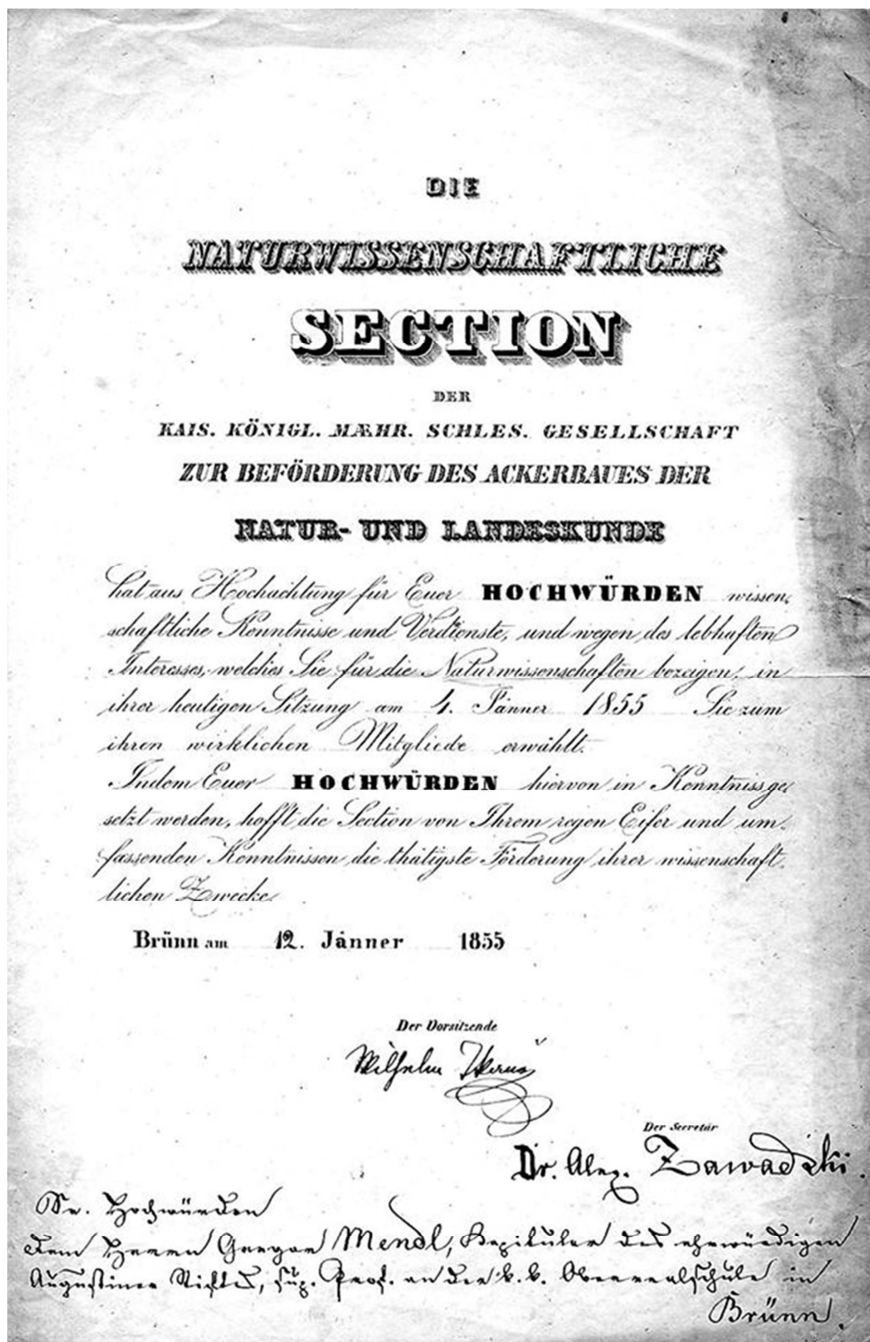 DIE
NATURWISSENSCHAFTLICHE
SECTION
DER
KAIS. KÖNIGL. MÆHR. SCHLES. GESELLSCHAFT
ZUR BEFÖRDERUNG DES ACKERBAUES DER
NATUR- UND LANDESKUNDE
hat aus Hochachtung für Euer HOCHWÜRDEN wissen-
schaftliche Kenntnisse und Verdienste, und wegen des lebhaften
Interesses, welches Sie für die Naturwissenschaften bezeigen, in
ihrer heutigen Sitzung am 4. Jänner 1855 Sie zum
ihren wirklichen Mitgliede erwählt.
Indem Euer HOCHWÜRDEN hiervon in Kenntniss ge-
setzt werden, hofft die Section von Ihrem regen Eifer und um-
fassenden Kenntnissen die thätigste Förderung ihrer wissenschaft-
lichen Zwecke.
Brünn am 12. Jänner 1855
Der Vorsitzende
Wilhelm
Der Secretär
Dr. Alex. Zawadzki.
Sr. Hochwürden
dem Herrn Gregor Mendl, Kapitular des ehrwürdigen
Augustiner Stiftes, sup. Prof. an der k. k. Oberrealschule in
Brünn.